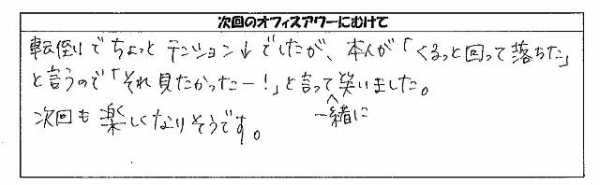 次回のオフィスアワーにむけて
転倒りでちょっとテンション↓でしたが、本人が「くるっと回って落ちた」
と言うので「それ見たかったー！」と言って一緒に笑いました。
次回も楽しくなりそうです。